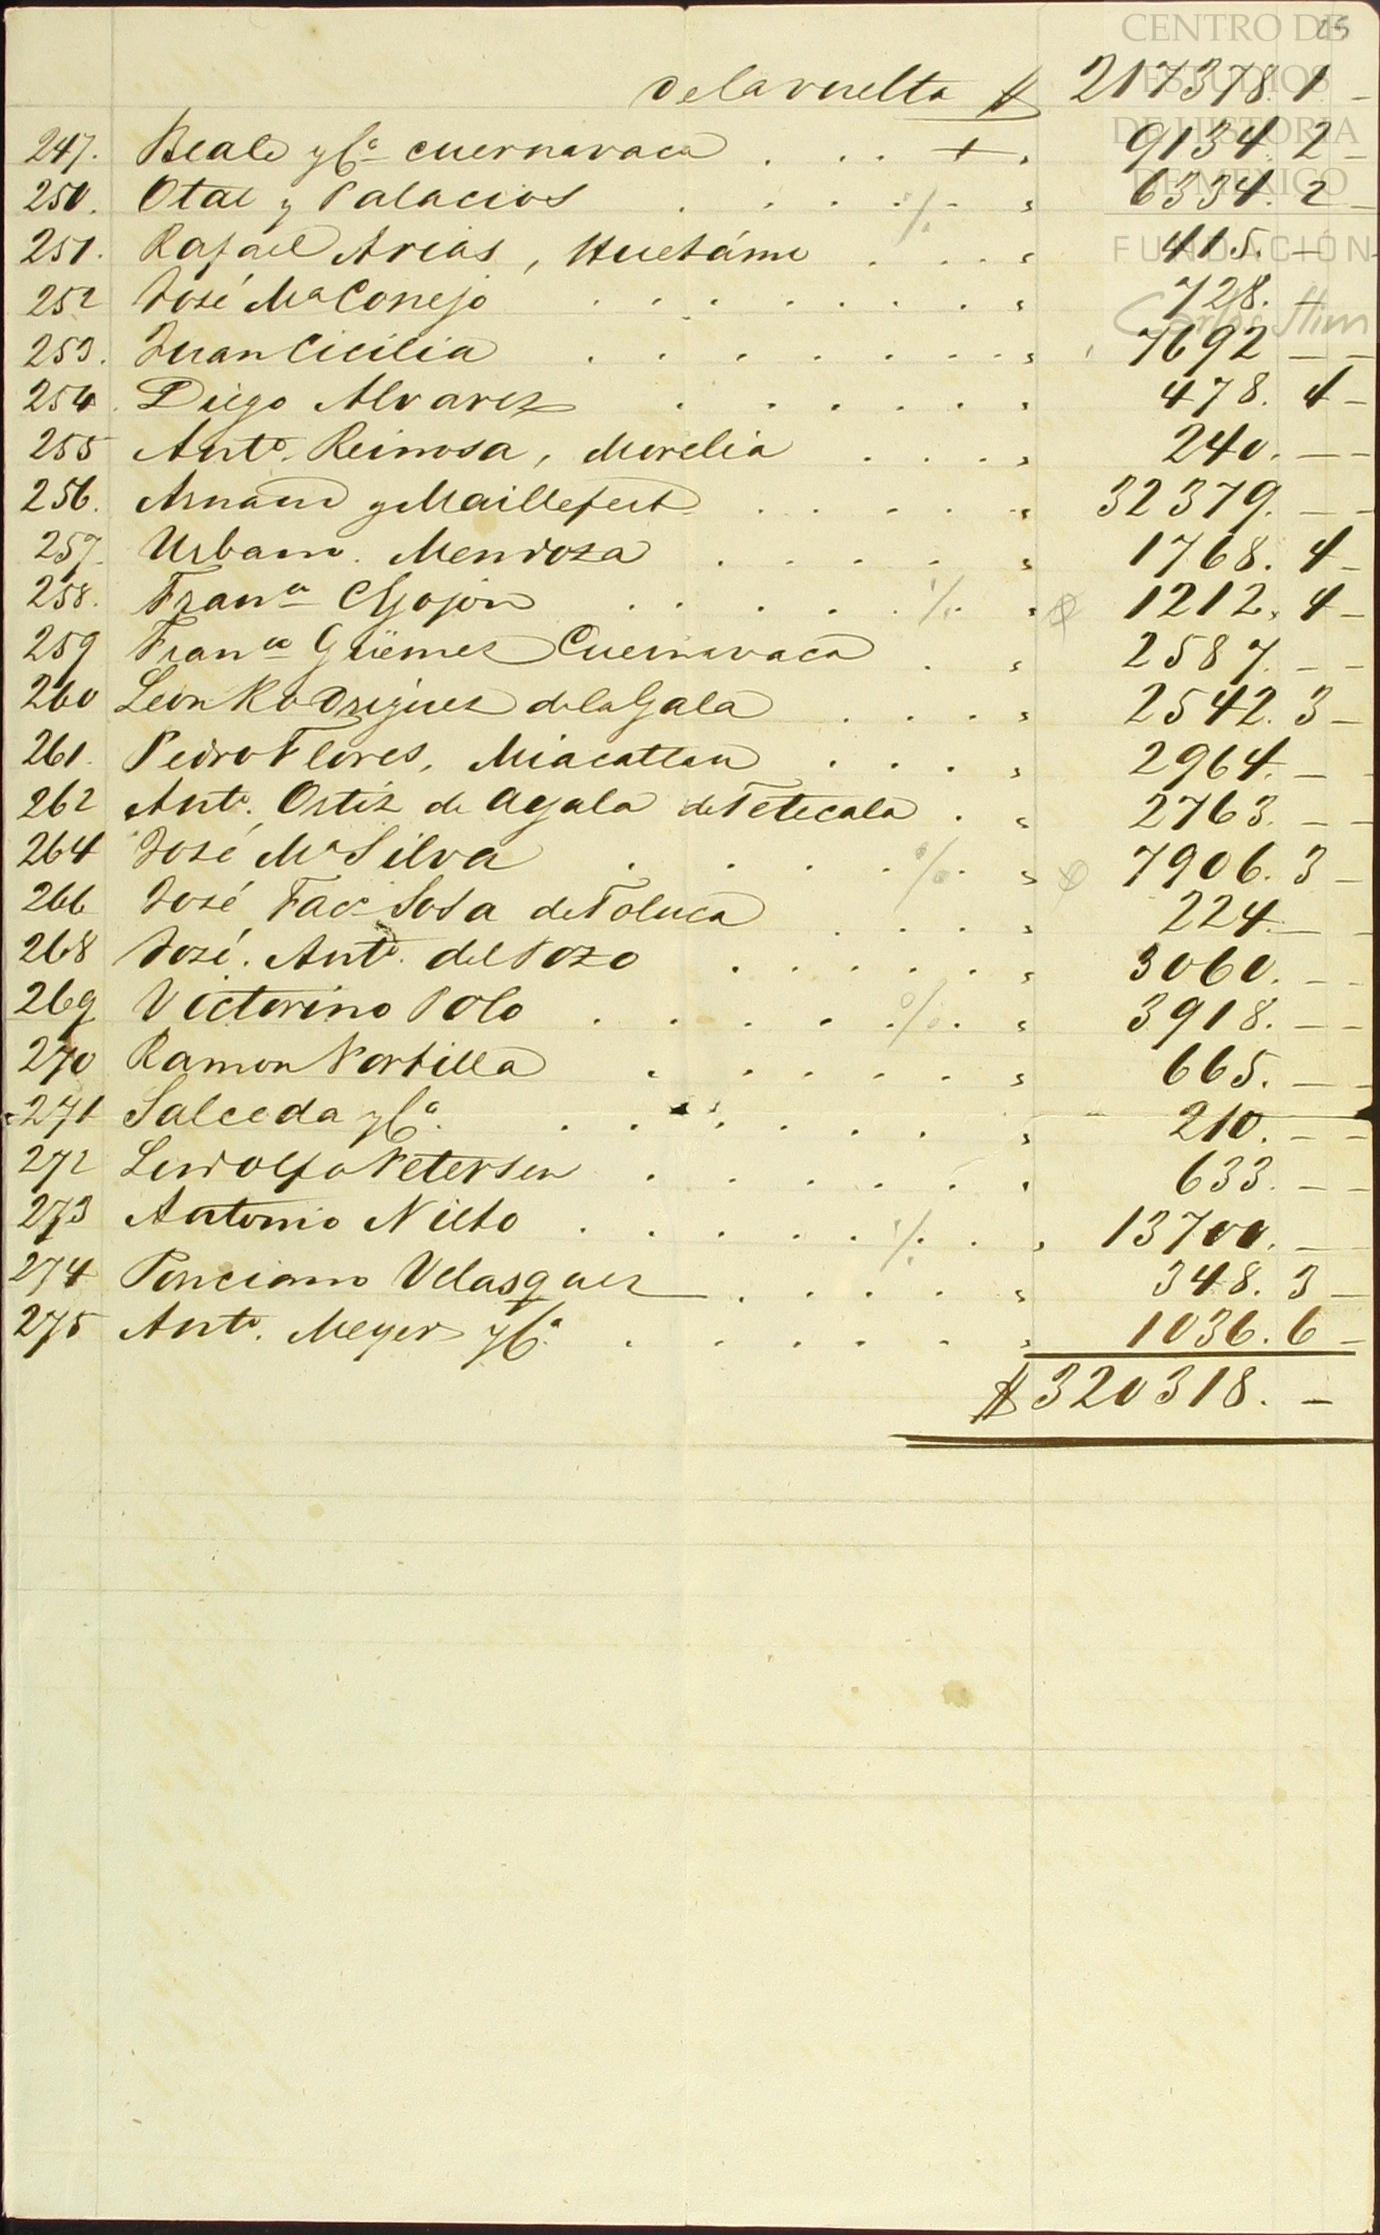 25
CENTRO DE
ESTUDIOS
DE HISTORIA
DE MEXICO
FUNDACIÓN
Carlos Slim
De la vuelta $ 217378. 1 -
247. Beale y Cª Cuernavaca . . . + , 9134. 2 -
250. Otal y Palacios . . . . % . , 6334. 2 -
251. Rafael Arias, Huetámo . . . , 415. - -
252 José Mª Conejo . . . . . . , 728. -
253. Juan Cicilia . . . . . . , 7692 - -
254. Diego Alvarez . . . . . , 478. 4 -
255 Antº. Reinosa, Morelia . . . , 240. - -
256. Arnaud y Maillefert . . . . , 32379. - -
257. Urbano Mendoza . . . . , 1768. 4 -
258. Franco Gojon . . . . % . , 1212. 4 -
259 Franco Güemes Cuernavaca . , 2587. - -
260 Leon Rodriguez de la Gala . . . , 2542. 3 -
261. Pedro Flores, Miacatlan . . . , 2964. - -
262 Antº. Ortiz de Ayala de Tetecala . , 2763. - -
264 José Mª Silva . . . . % . , 7906. 3 -
266 José Facº Sosa de Toluca . . . , 224. - -
268 José. Antº. del Pozo . . . . , 3060. - -
269 Victorino Polo . . . . % . , 3918. - -
270 Ramon Portilla . . . . . , 665. - -
271 Salceda y Cª. . . . . . . , 210. - -
272 Ludolfo Petersen . . . . . , 633. - -
273 Antonio Nieto . . . . . % . , 13700. - -
274 Ponciano Velasquez . . . . , 348. 3 -
275 Antº. Meyer y Cª . . . . . , 1036. 6 -
$ 320318. -